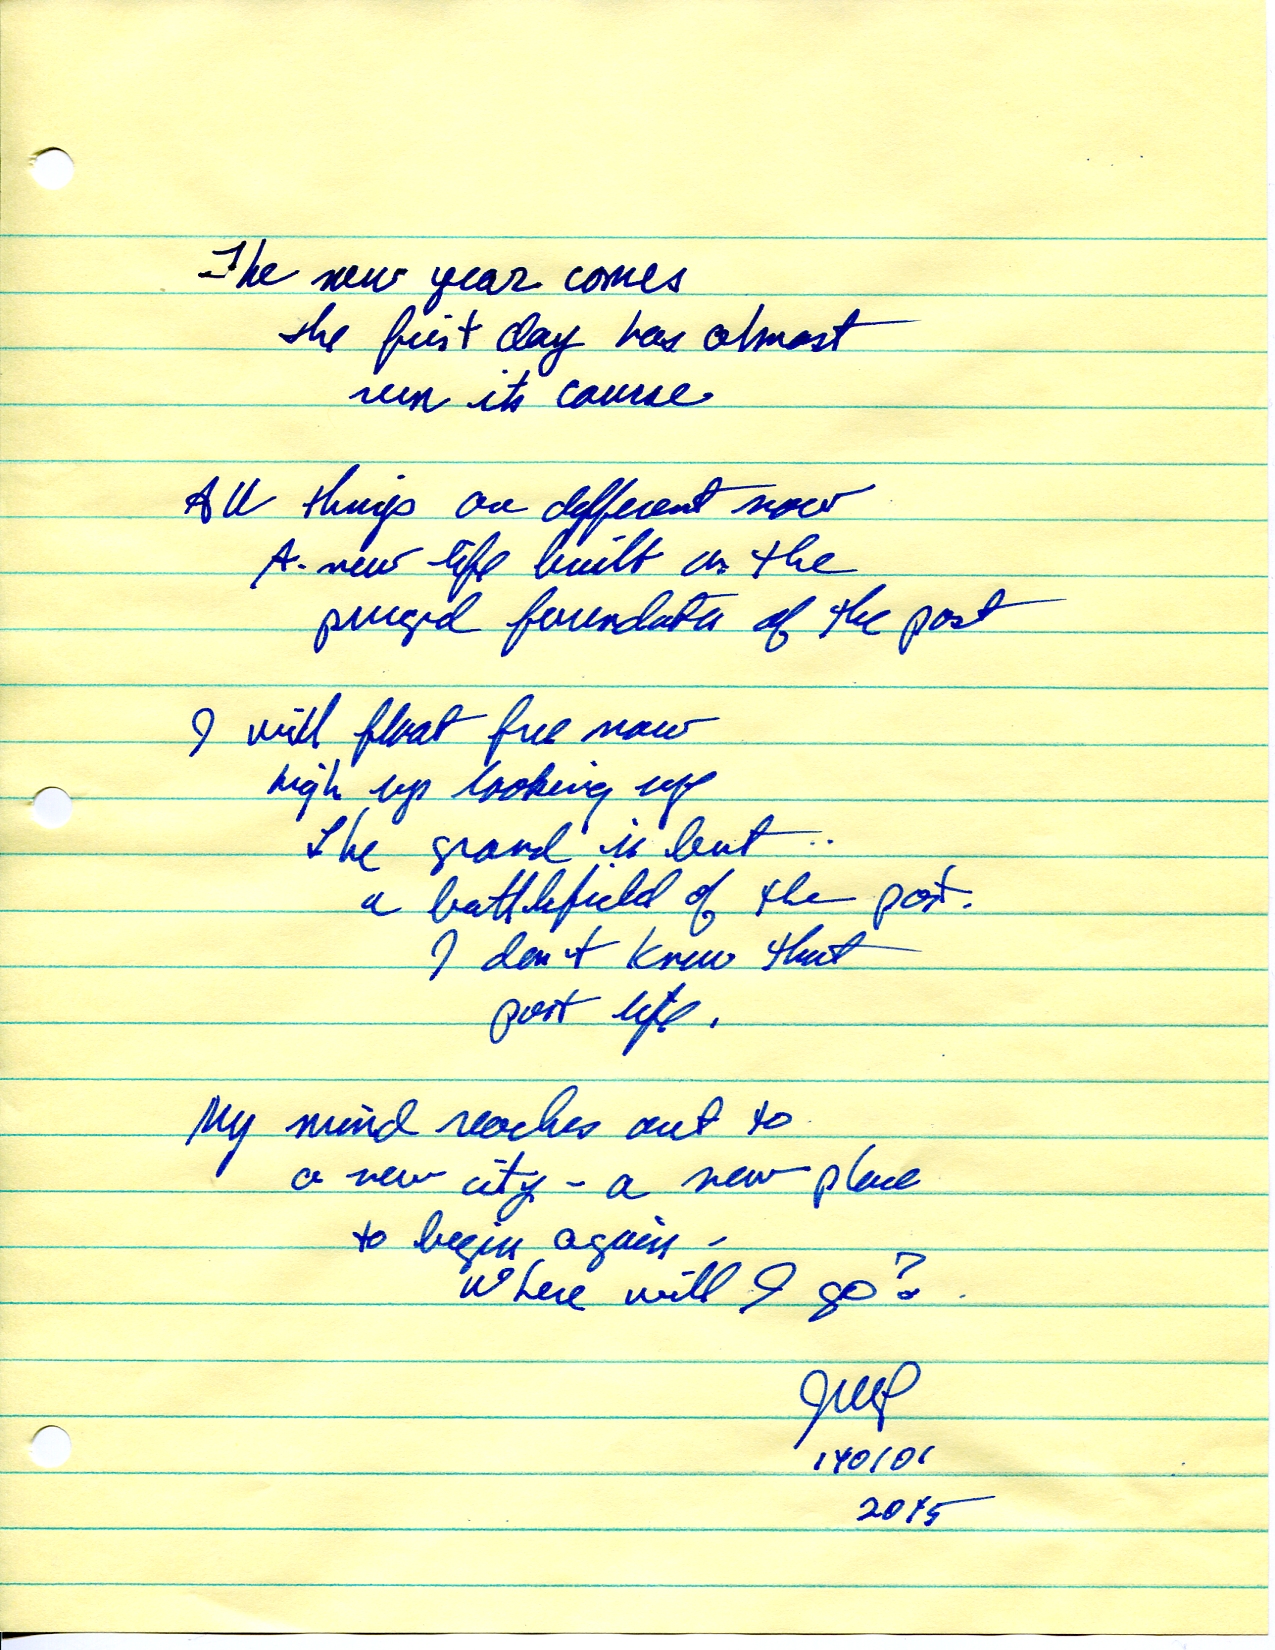 The new year comes
the first day has almost
run its course.
All things are different now
A new life built on the
purged foundation of the past
I will float free now
high up looking up
The ground is but
a battlefield of the past.
I don't know that
past life.
My mind reaches out to
a new city - a new place
to begin again -
Where will I go?
140101
2045